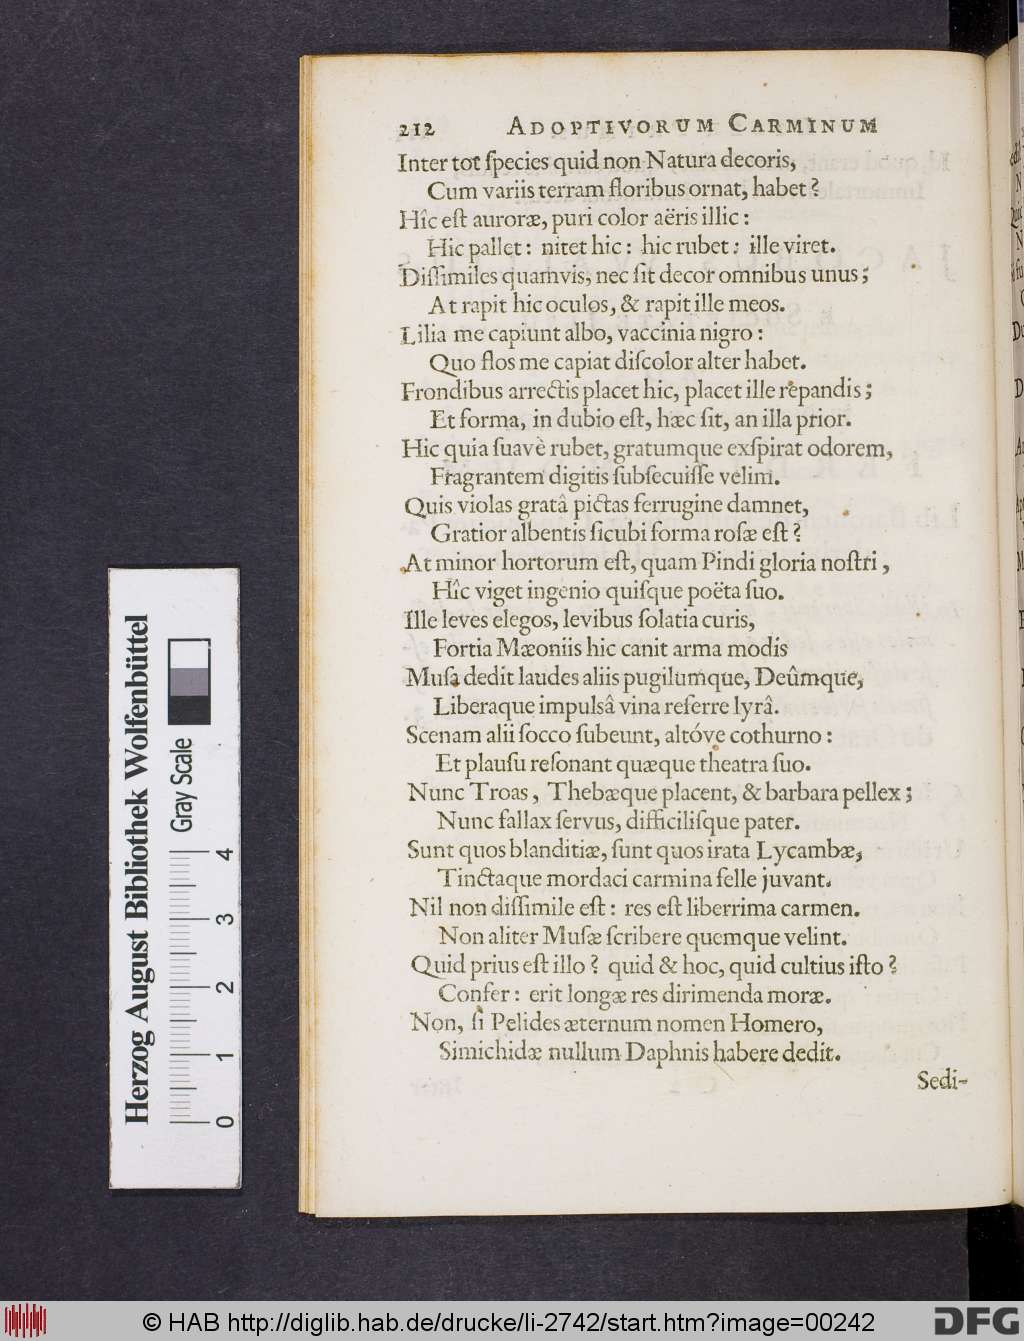 212 ADOPTIVORUM CARMINUM
Inter tot ſpecies quid non Natura decoris,
Cum variis terram floribus ornat, habet?
Hîc eſt auroræ, puri color aëris illic:
Hic pallet: nitet hic: hic rubet: ille viret.
Diſſimiles quamvis, nec ſit decor omnibus unus;
At rapit hic oculos, & rapit ille meos.
Lilia me capiunt albo, vaccinia nigro:
Quo flos me capiat diſcolor alter habet.
Frondibus arrectis placet hic, placet ille repandis;
Et forma, in dubio eſt, hæc ſit, an illa prior.
Hic quia ſuavè rubet, gratumque exſpirat odorem,
Fragrantem digitis ſubſecuiſſe velim.
Quis violas gratâ pictas ferrugine damnet,
Gratior albentis ſicubi forma roſæ eſt?
At minor hortorum eſt, quam Pindi gloria noſtri,
Hîc viget ingenio quiſque poëta ſuo.
Ille leves elegos, levibus ſolatia curis,
Fortia Mæoniis hic canit arma modis
Muſa dedit laudes aliis pugilumque, Deûmque,
Liberaque impulsâ vina referre lyrâ.
Scenam alii ſocco ſubeunt, altóve cothurno:
Et plauſu reſonant quæque theatra ſuo.
Nunc Troas, Thebæque placent, & barbara pellex;
Nunc fallax ſervus, difficiliſque pater.
Sunt quos blanditiæ, ſunt quos irata Lycambæ,
Tinctaque mordaci carmina felle juvant.
Nil non diſſimile eſt: res eſt liberrima carmen.
Non aliter Muſæ ſcribere quemque velint.
Quid prius eſt illo? quid & hoc, quid cultius iſto?
Confer: erit longæ res dirimenda moræ.
Non, ſi Pelides æternum nomen Homero,
Simichidæ nullum Daphnis habere dedit.
Sedi-
Herzog August Bibliothek Wolfenbüttel
Gray Scale
0 1 2 3 4
© HAB http://diglib.hab.de/drucke/li-2742/start.htm?image=00242
DFG